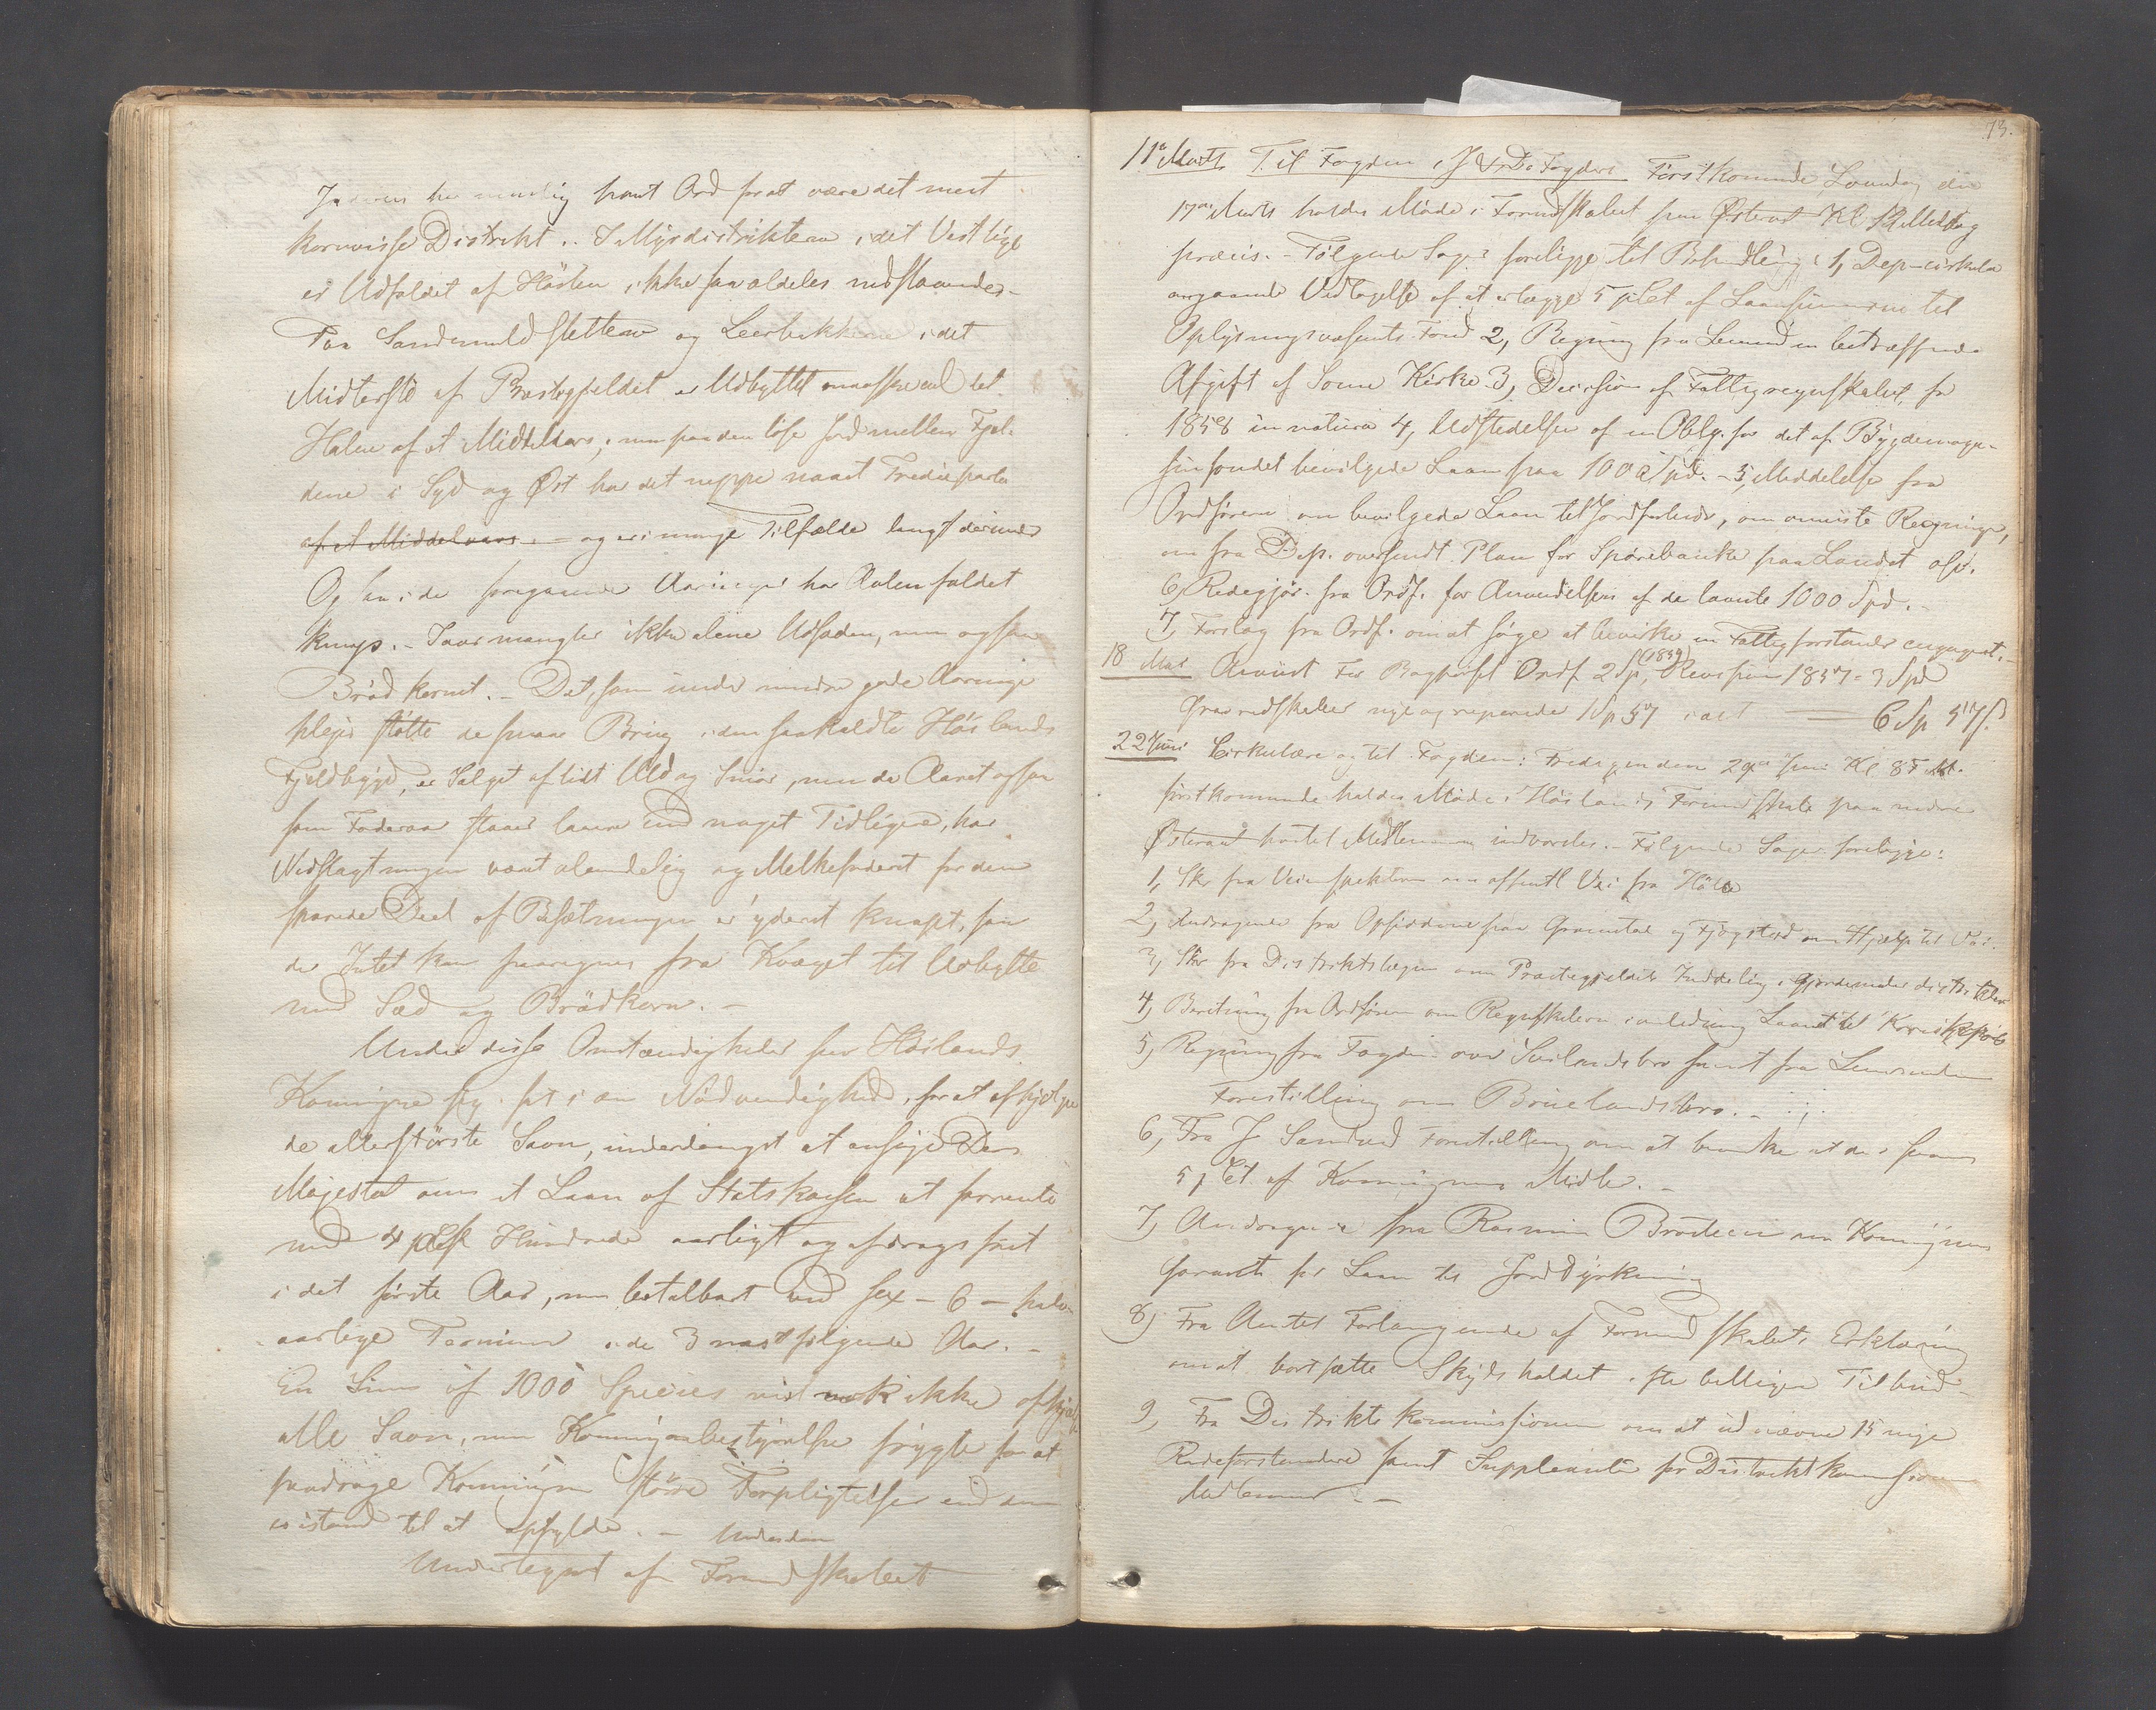 Jæderen har nemlig havt Ord for at være det mest
kornvisse Distrikt. I Myrdistrikterne i det Vestlige
er Udfaldet af Hösten ikke saa aldeles nedslaaende -
Paa Sandmuldsletterne og Leerbakkerne i det
Midterste af Præstegjeldet er Udbyttet maaskee vel det
Halve af et Middelaars, men paa den löse Jord mellem Fjel-
dene i Syd og Öst har det neppe naaet Tredieparten
af et Middelaars - og er i mange Tilfælde langt derunder
Og her i de foregaaende Aaringer har Avlen faldet
knap. - Saaer mangler ikke alene Udsæden, men ogsaa
Brödkornet. - Det, som under mindre gode Aaringer
pleier stötte de smaa Brug i den saakaldte Höilands
Fjeldbygd, er Salget af lidt Uld og Smör, men da Aaret ogsaa
som Foderaar staaer lavere end noget Tidligere, har
Nedslagtningen været almindelig og Melkefoderet for den
sparede Deel af Besætningen er yderst knapt, saa
der Intet kan paaregnes fra Kvæget til Udbytte
mod Sæd og Brödkorn. -
Under disse Omstændigheder seer Höilands
Kommune sig sat i en Nödvendighed, for at afhjelpe
de allerstörste Savn, underdanigst at ansöge Deres
Majestæt om et Laan af Statskassen at forrente
med 4 pCt Hundrede aarligt og afdragsfrit
i det förste Aar, men betalbart ved sex - 6 - halv-
aarlige Terminer i de 3 næstfölgende Aar. -
En Sum af 1000 Species vil nok ikke afhjelpe
alle Savn, men Kommunebestyrelsen frygter for at
paadrage Kommunen större Forpligtelser end den
er istand til at opfylde. - Underdan
Undertegnet af Formandskabet
73.
11te Marts Til Fogden i J & D Fogderi Förstkomende Löverdag den
17de Marts holdes Möde i Formandskabet paa Österaat Kl 4 Middag
præcis. - Fölgende Sager foreligge til Behandling: 1, Dep-cirkulære
angaaende Vedtagelse af at erlægge 5 pCt af Laansummerne til
Oplysningsvæsenets Fond 2, Regning fra Lensmanden betræffende
Afgift af Soma Kirke 3, Decision af Fattigregnskabet for
1858 in natura 4, Udstedelsen af en Oblg. for det af Bygdemaga-
sinfondet bevilgede Laan paa 1000 Spd. - 5, Meddelelse fra
Ordföreren om bevilgede Laan til Jordforbedr, om anviste Regninger,
om fra Dep. oversendt Plan for Sparebanke paa Landet osv.
6, Redegjör. fra Ordf. for Anvendelsen af de laante 1000 Spd. -
7, Forslag fra Ordf. om at söge at bevirke en Fattigforstander engageret. -
18 Mai Anviist For Bogförsel Ordf 2 Sp, (1859) Revision 1857 = 3 Spd
Gravredskaber nye og reparede 1 Sp 57 ialt — 6 Sp 57 s.
22 Juni Cirkulære og til Fogden: Fredagen den 29de Juni Kl 8 F. M.
förstkommende holdes Möde i Höilands Formandskab paa nedre
Österaat hvortil Medlemmerne indvarsles. - Fölgende Sager foreligge:
1, Skr fra Veiinspektøren om offentl Vei fra Höle
2, Andragende fra Opsidderne paa Gramstad og Fjogstad om Hjelp til Vei.
3, Skr fra Distriktslægen om Præstegjeldets Inddeling i Gjordemoderdistrikter
4, Beretning fra Ordföreren om Regnskaberne i anledning Laanet til Kornindkjöb
5, Regning fra Fogden over Sviland<s>sbro samt fra Lensmanden
Forestilling om Bruelandsbro. - :,:
6, Fra J Sandved Forestilling om at bevirke at de i faaes
5 pCt. af Kommunens Midler. -
7, Andragende fra Rasmus Braadlien om Kommunens
Garanti for Laan til Jorddyrkning
8, Fra Amtet Forlangende af Formandskabets Erklæring
om at bortsætte Skydsholdet efter billigere Tilbud -
9, Fra Distriktskommissionen om at udnævne 15 nye
Rodeforstandere samt Suppleanter for Distriktskommissionens
Medlemmer. -